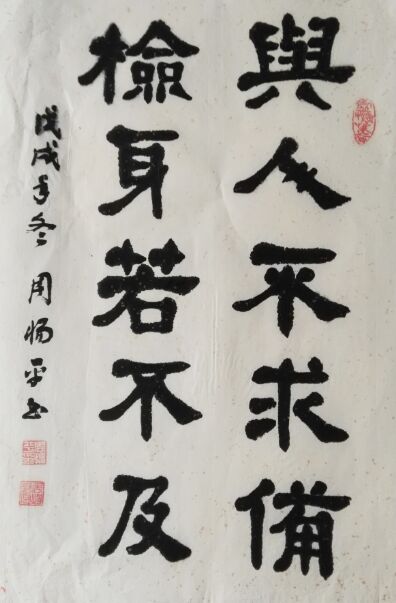 與人不求備
檢身若不及
戊戌年冬 周平书